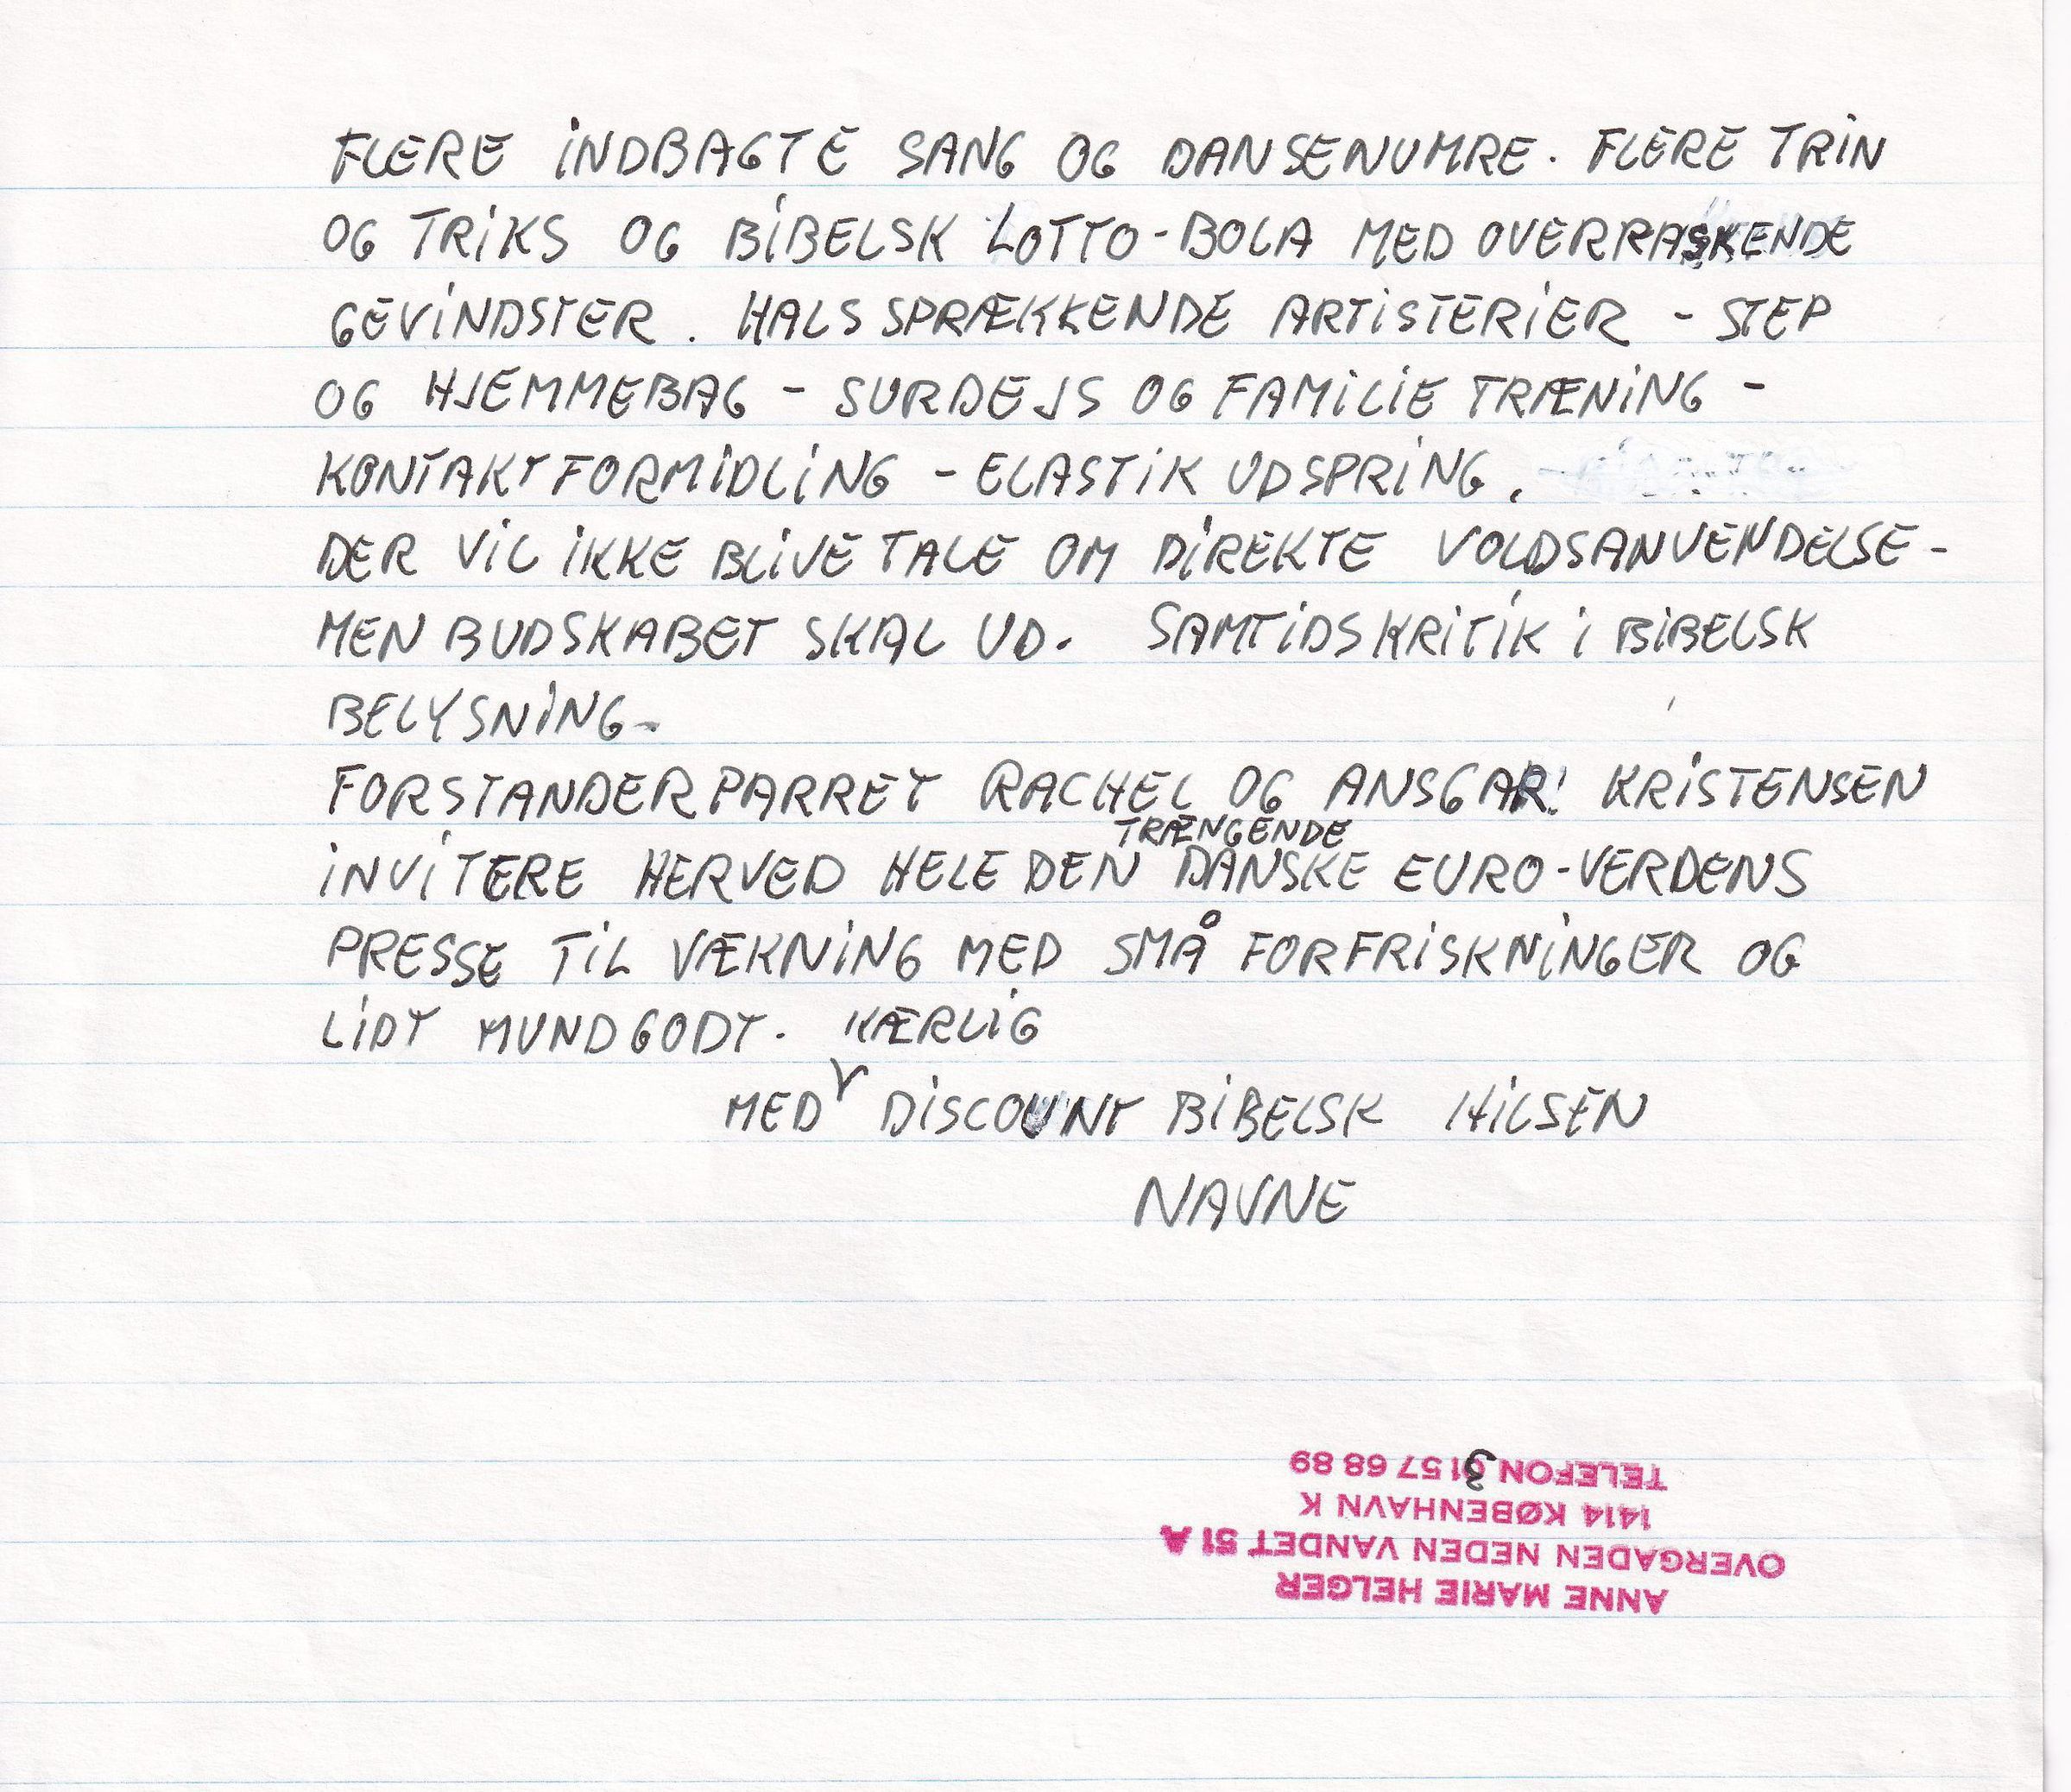 FLERE INDBAGTE SANG OG DANSENUMRE. FLERE TRIN
OG TRIKS OG BIBELSK LOTTO-BOLA MED OVERRASKENDE
GEVINDSTER. HALSSPRÆKKENDE ARTISTERIER - STEP
OG HJEMMEBAG - SURDEJS OG FAMILIE TRÆNING -
KONTAKTFORMIDLING - ELASTIK UDSPRING.
DER VIL IKKE BLIVE TALE OM DIREKTE VOLDSANVENDELSE -
MEN BUDSKABET SKAL UD. SAMTIDSKRITIK I BIBELSK
BELYSNING-
FORSTANDERPARRET RACHEL OG ANSGAR! KRISTENSEN
TRÆNGENDE
INVITERE HERVED HELE DEN DANSKE EURO-VERDENS
PRESSE TIL VÆKNING MED SMÅ FORFRISKNINGER OG
LIDT MUNDGODT. KÆRLIG
MED DISCOUNT BIBELSK HILSEN
NAVNE
ANNE MARIE HELGER
OVERGADEN NEDEN VANDET 51 A
1414 KØBENHAVN K
TELEFON 31 57 68 89